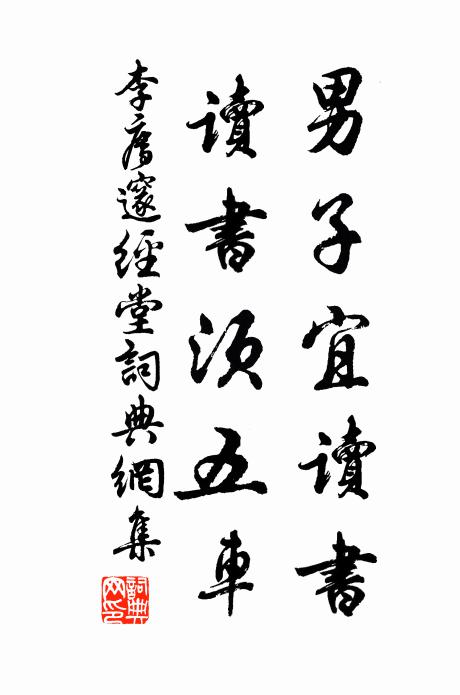 男子宜讀書
讀書須五車
李廌邃經堂詞典網集
詞典网印